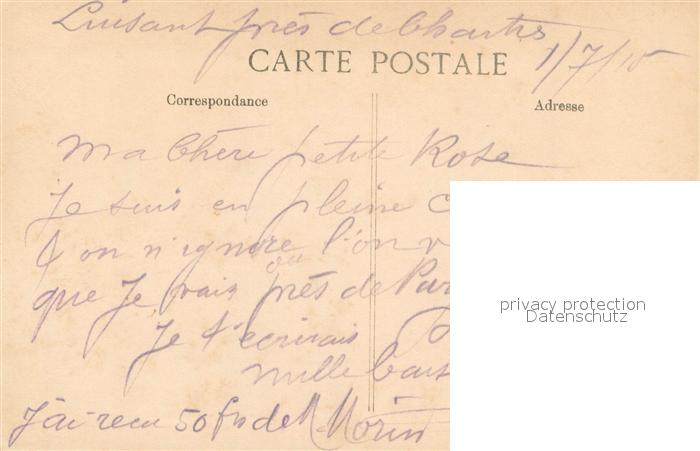 Luisant près de Chartres
1/7/15
CARTE POSTALE
Correspondance
Adresse
Ma Chère petite Rose
Je suis en pleine
on n'ignore l'on
ou
que Je vais près de Par
Je t'écrirais
mille bais
J'ai recu 50 frs de M Morin
privacy protection
Datenschutz